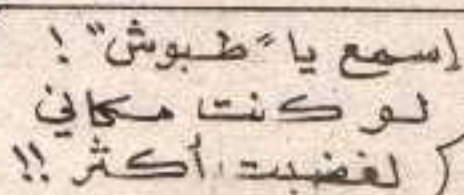 إسمع يا "طبوش" !
لو كنت مكاني
لغضبت أكثر !!